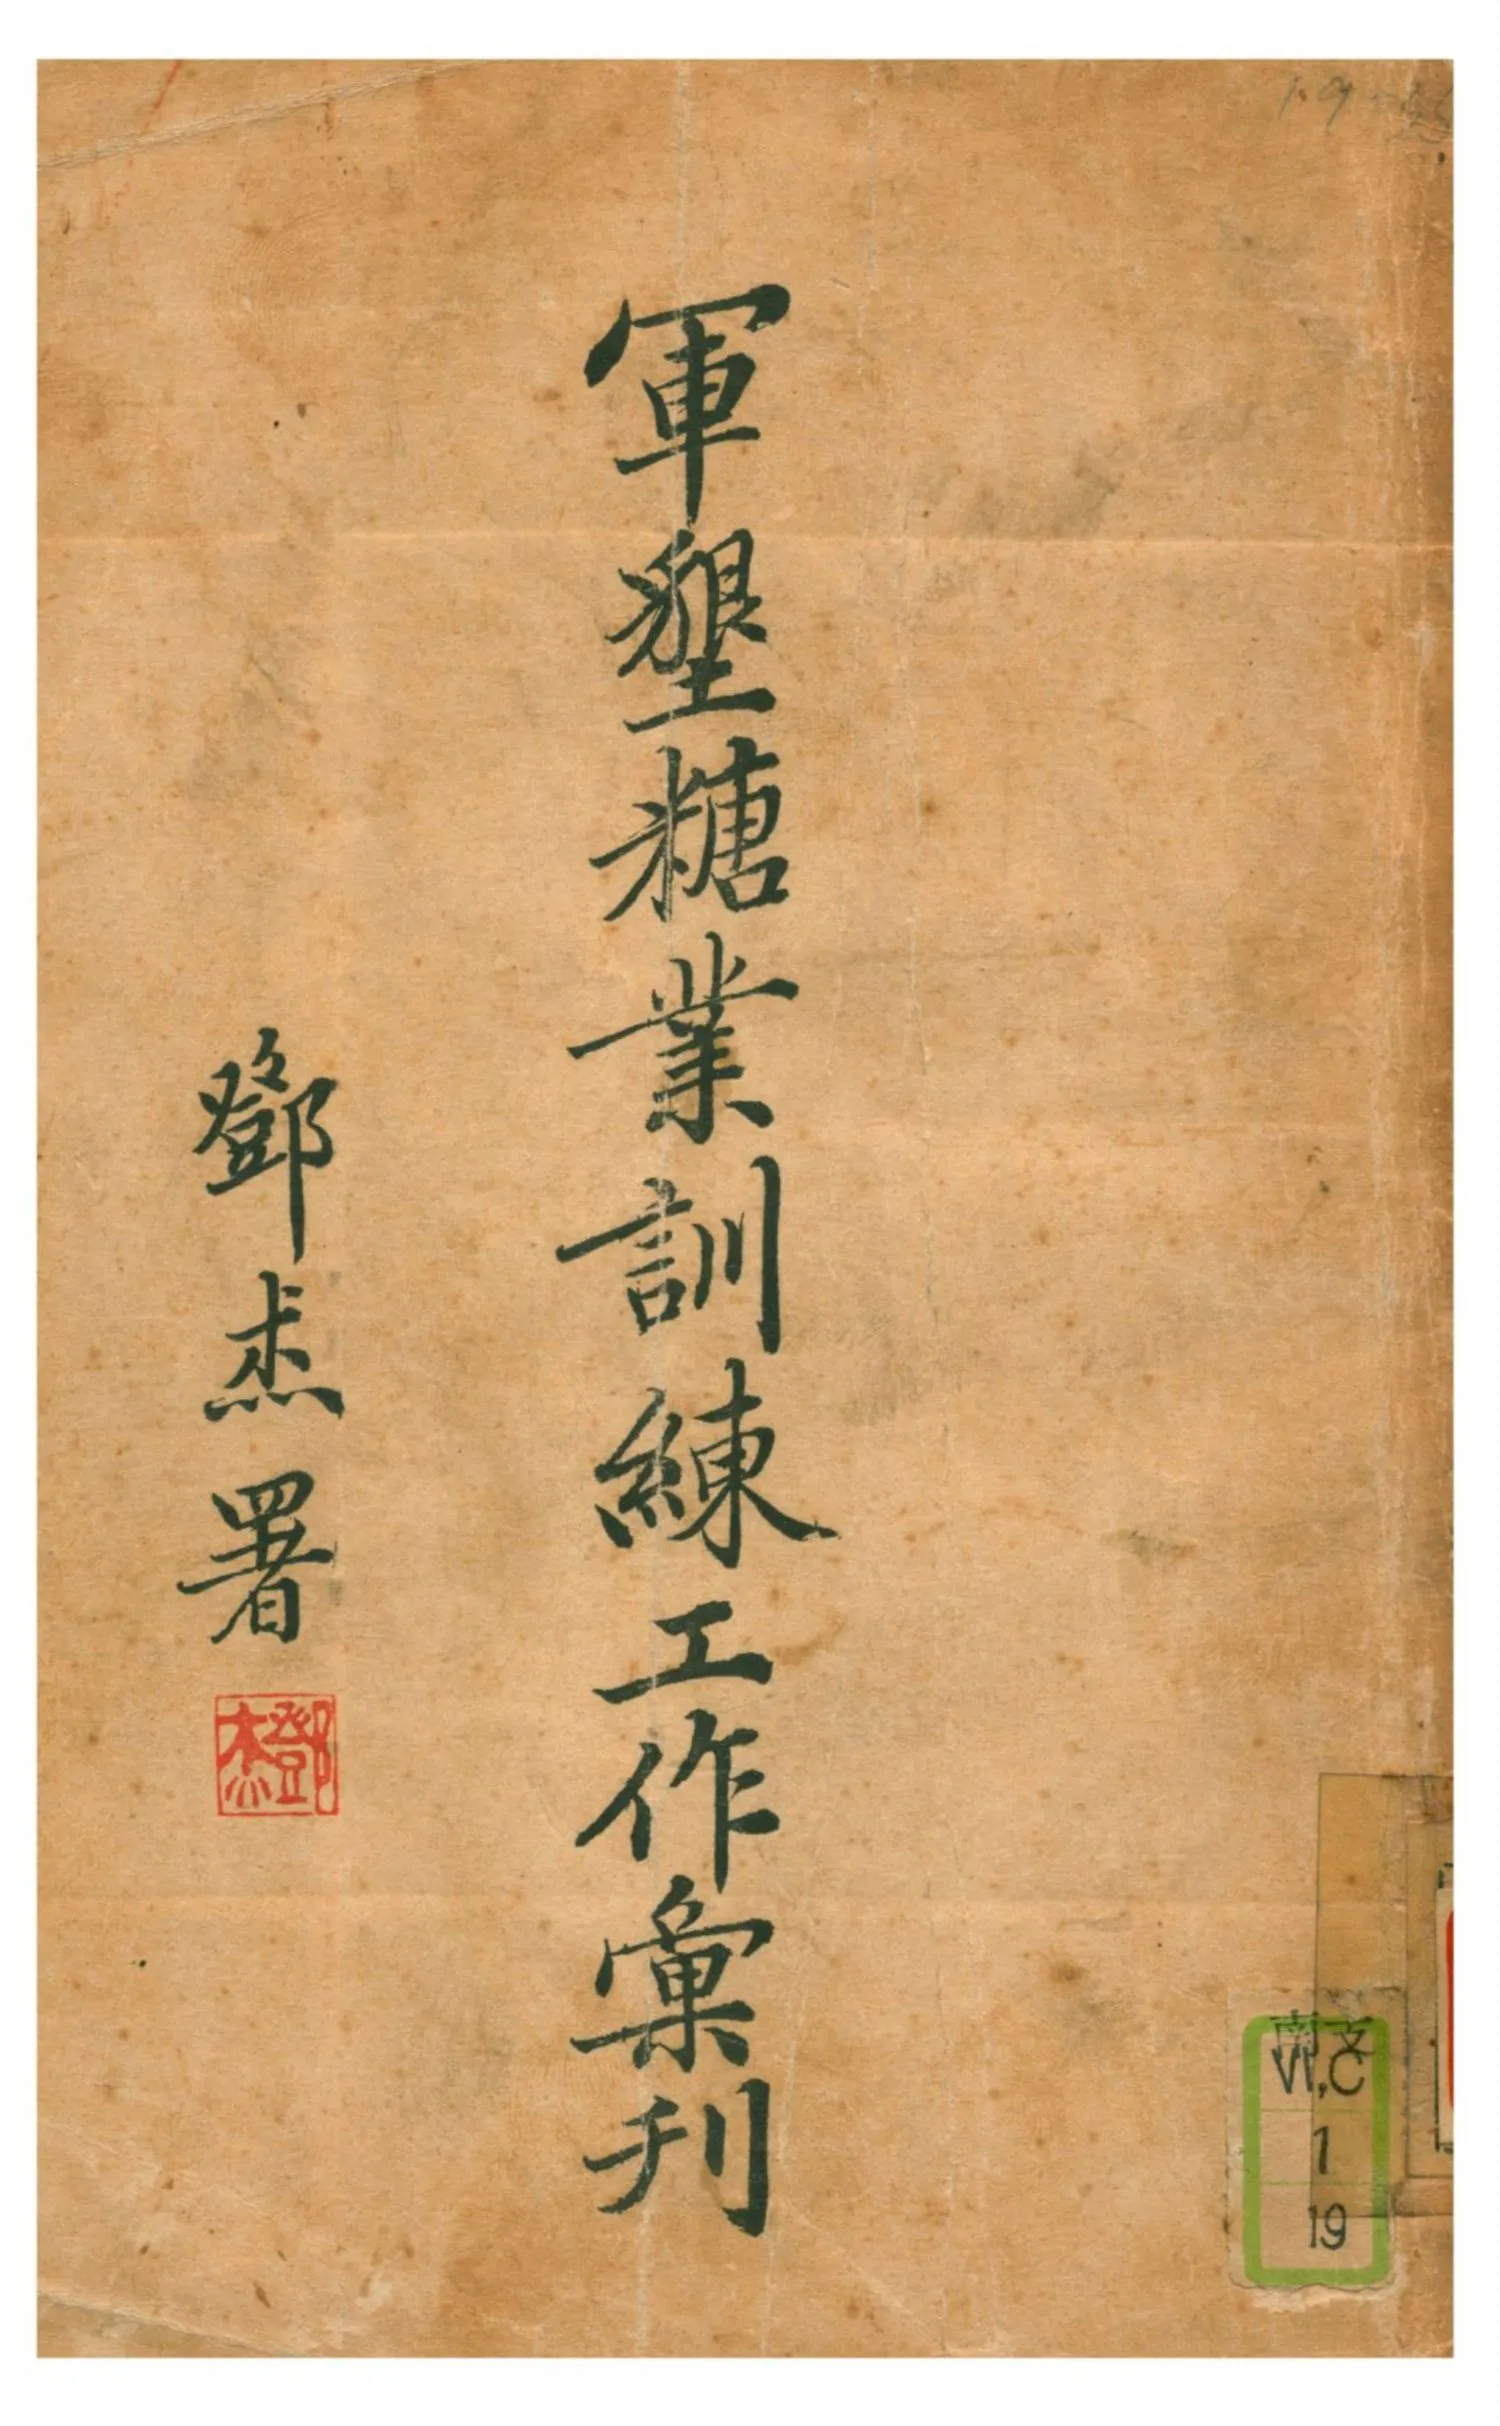 軍墾糖業訓練工作彙刊
鄧杰署
鄧杰
南支
VI,C
1
19